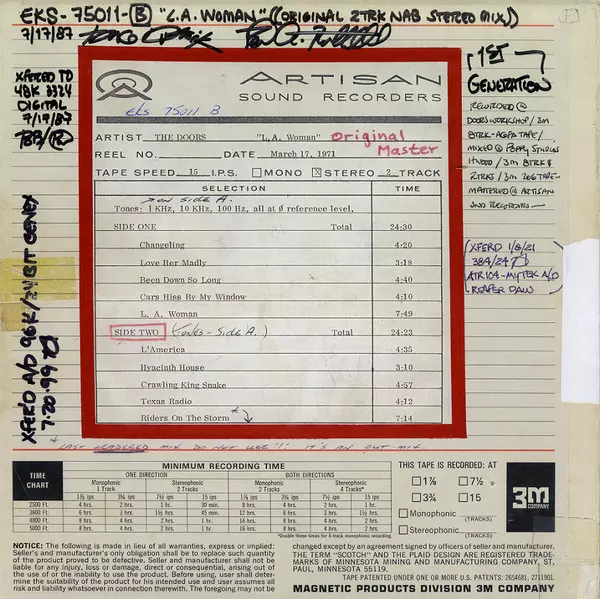 EKS-75011-B "L.A. WOMAN" ((ORIGINAL 2TRK NAB STEREO MIX))
7/17/87
XFERED TO
48K 3324
DIGITAL
7/17/87
1ST
GENERATION
RECORDED @
DOORS WORKSHOP / 3M
8TRK-AGFA TAPE/
MIXED @ POPPY STUDIOS
HWOOD / 3M 8TRK &
2TRKS / 3M 206 TAPE-
MASTERED @ ARTISAN
SND RECORDERS-
XFERD 1/8/21
384/24
ATR104-MYTEK A/D
REAPER DAW
XFERD A/D 96K/24 BIT GENEX
7.20.99
ARTISAN
SOUND RECORDERS
EKS 75011 B
ARTIST THE DOORS "L.A. Woman" Original
Master
REEL NO. DATE March 17, 1971
TAPE SPEED 15 I.P.S. MONO X STEREO 2 TRACK
SELECTION TIME
on side A.
Tones: 1 KHz, 10 KHz, 100 Hz, all at Ø reference level,
SIDE ONE Total 24:30
Changeling 4:20
Love Her Madly 3:18
Been Down So Long 4:40
Cars Hiss By My Window 4:10
L. A. Woman 7:49
SIDE TWO (Tones - Side A.) Total 24:23
L'America 4:35
Hyacinth House 3:10
Crawling King Snake 4:57
Texas Radio 4:12
Riders On The Storm * 7:14
* LAST LEADERED MIX DO NOT USE!! IT'S AN OUT-MIX.
TIME
CHART
MINIMUM RECORDING TIME
ONE DIRECTION BOTH DIRECTIONS
Monophonic Stereophonic Monophonic Stereophonic
1 Track 2 Tracks 2 Tracks 4 Tracks*
1⅞ ips 3¾ ips 7½ ips 15 ips 1⅞ ips 3¾ ips 1⅞ ips 3¾ ips
2500 Ft. 4 hrs. 2 hrs. 1 hr. 30 min. 8 hrs. 4 hrs. 8 hrs. 4 hrs.
3600 Ft. 6 hrs. 3 hrs. 1½ hrs. 45 min. 12 hrs. 6 hrs. 12 hrs. 6 hrs.
4800 Ft. 8 hrs. 4 hrs. 2 hrs. 1 hr. 16 hrs. 8 hrs. 16 hrs. 8 hrs.
5000 Ft. 8 hrs. 4 hrs. 2 hrs. 1 hr. 16 hrs. 8 hrs. 16 hrs. 8 hrs.
*Double these times for 4-track monophonic recording.
THIS TAPE IS RECORDED: AT
1⅞ 7½
3¾ 15
Monophonic
(TRACKS)
Stereophonic
(TRACKS)
3M
COMPANY
NOTICE: The following is made in lieu of all warranties, express or implied:
Seller's and manufacturer's only obligation shall be to replace such quantity
of the product proved to be defective. Seller and manufacturer shall not be
liable for any injury, loss or damage, direct or consequential, arising out of
the use of or the inability to use the product. Before using, user shall deter-
mine the suitability of the product for his intended use and user assumes all
risk and liability whatsoever in connection therewith. The foregoing may not be
changed except by an agreement signed by officers of seller and manufacturer.
THE TERM "SCOTCH" AND THE PLAID DESIGN ARE REGISTERED TRADE-
MARKS OF MINNESOTA MINING AND MANUFACTURING COMPANY, ST.
PAUL, MINNESOTA 55119.
TAPE PATENTED UNDER ONE OR MORE U.S. PATENTS: 2654681, 2711901.
MAGNETIC PRODUCTS DIVISION 3M COMPANY